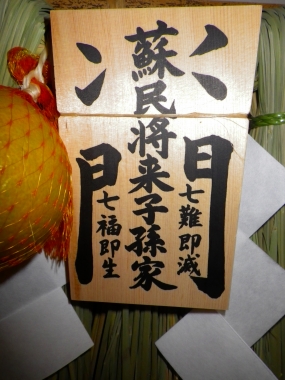 蘇民将来子孫家
門
七難即滅
七福即生